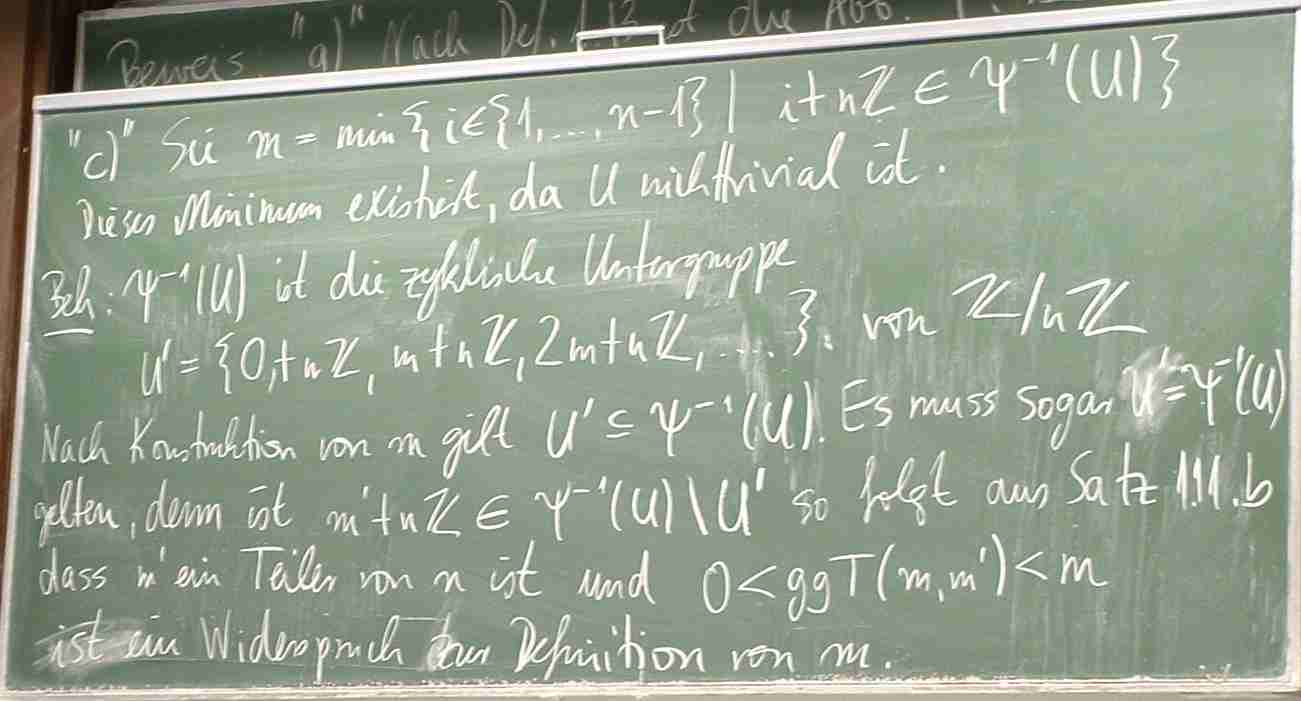 Beweis: "a)" Nach Def. 1.13 ist die Abb.
"c)" Sei m = min {i∈{1,...,n-1} | i+nℤ ∈ Ψ⁻¹(U)}
Dieses Minimum existiert, da U nichttrivial ist.
Beh: Ψ⁻¹(U) ist die zyklische Untergruppe
U' = {0+nℤ, m+nℤ, 2m+nℤ, ....}. von ℤ/nℤ
Nach Konstruktion von m gilt U' ⊆ Ψ⁻¹(U). Es muss sogar U' = Ψ⁻¹(U)
gelten, denn ist m'+nℤ ∈ Ψ⁻¹(U)\U' so folgt aus Satz 1.11.b
dass m' ein Teiler von n ist und 0 < ggT(m,m') < m
ist ein Widerspruch zur Definition von m.